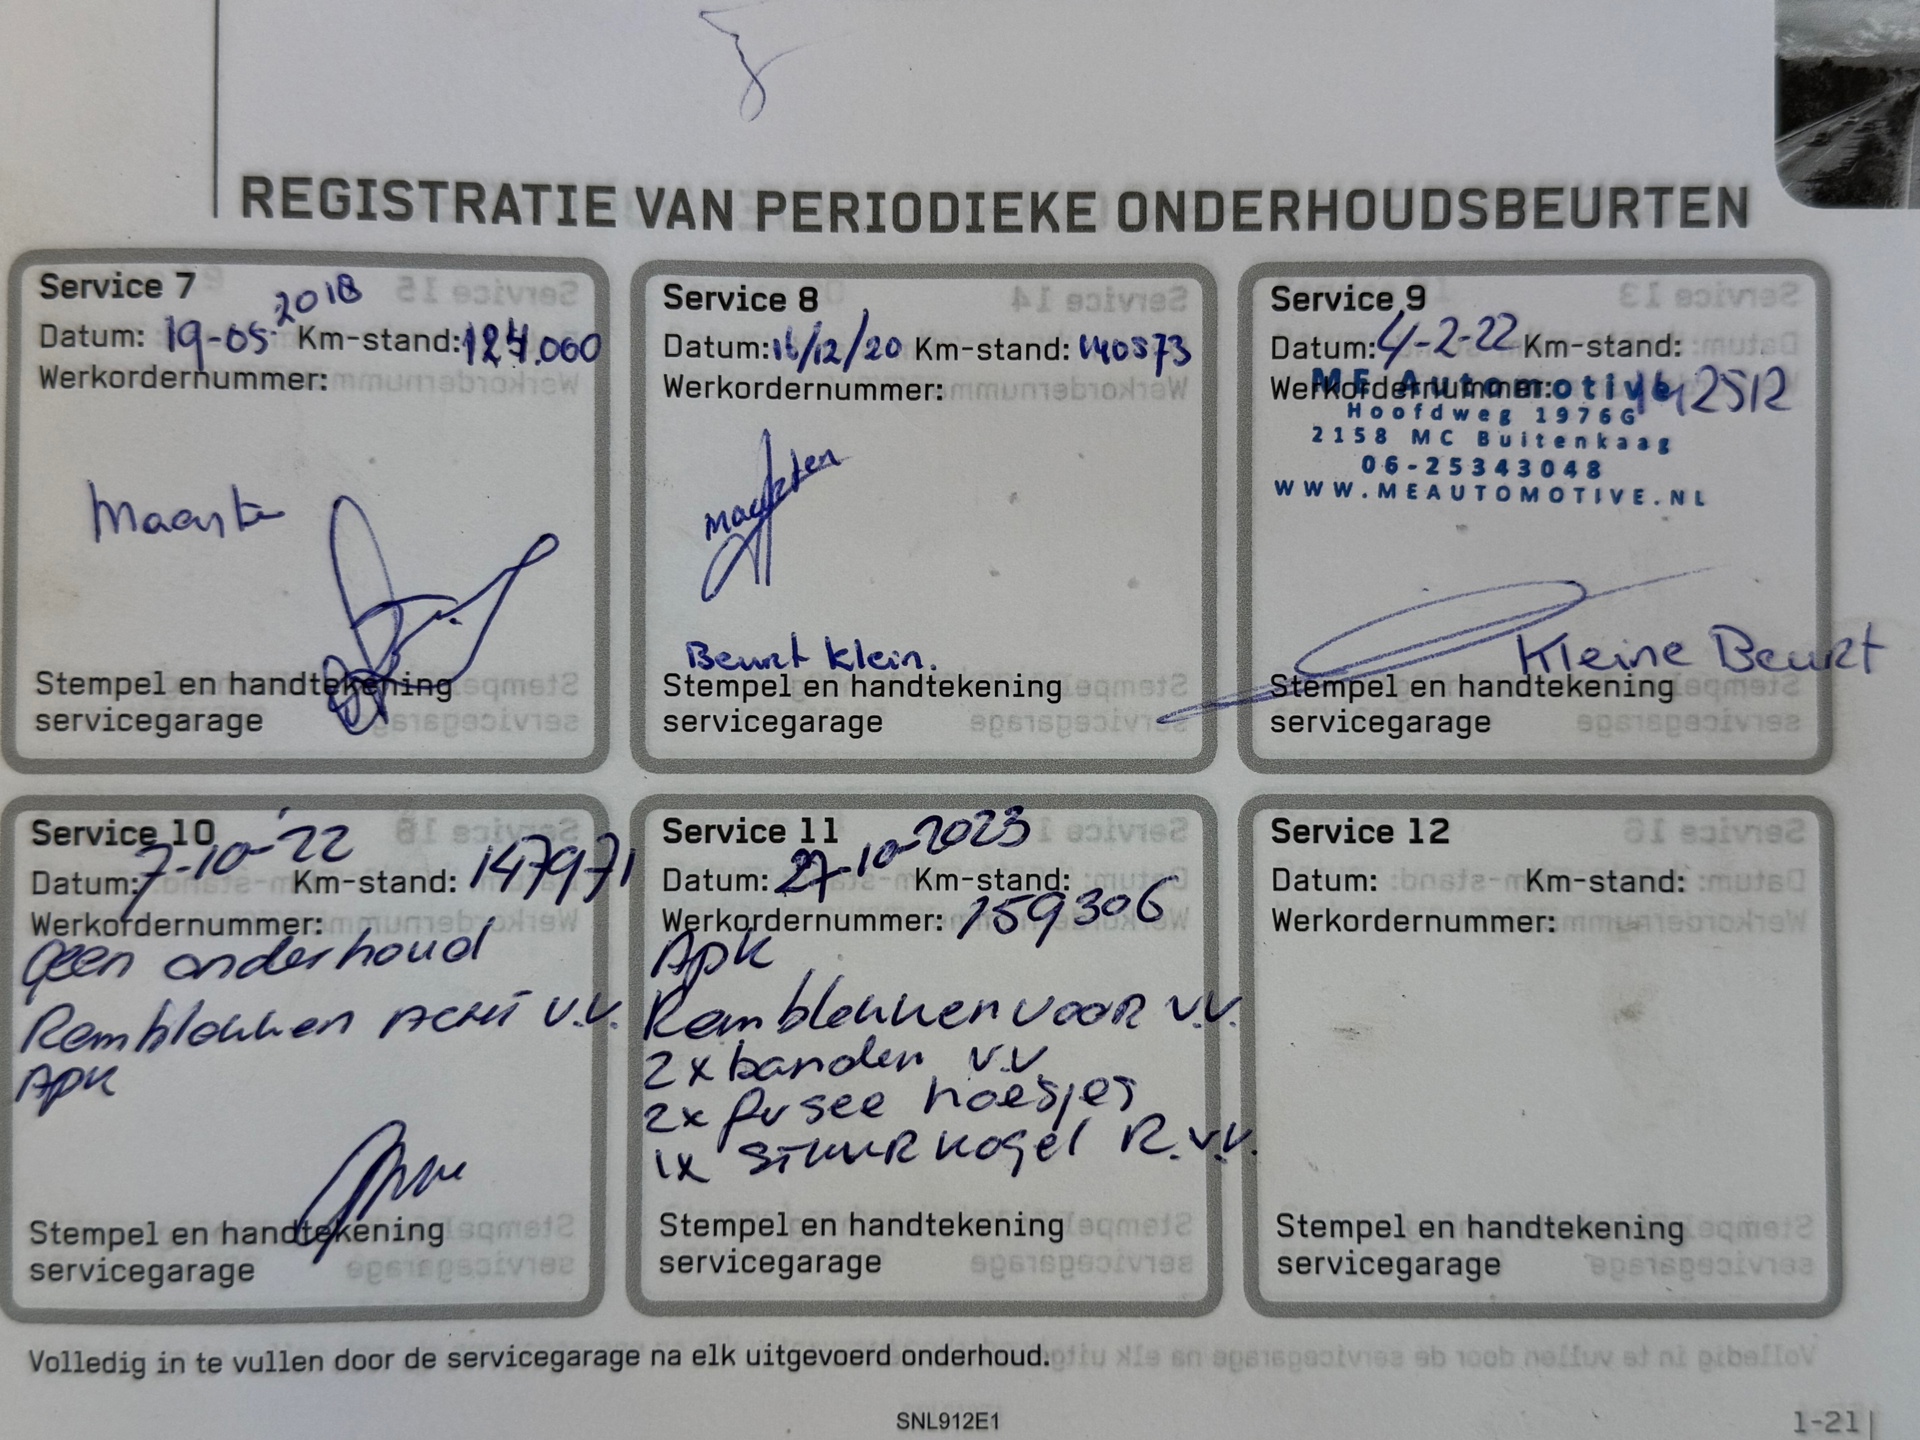 REGISTRATIE VAN PERIODIEKE ONDERHOUDSBEURTEN
Service 7
2018
Datum: 19-05- Km-stand: 124.000
Werkordernummer:
Maarten
Stempel en handtekening
servicegarage
Service 8
Datum: 16/12/20 Km-stand: 140573
Werkordernummer:
Maarten
Beurt klein.
Stempel en handtekening
servicegarage
Service 9
Datum: 4-2-22 Km-stand:
Werkordernummer: 142512
ME Automotive
Hoofdweg 1976G
2158 MC Buitenkaag
06-25343048
WWW.MEAUTOMOTIVE.NL
Kleine Beurt
Stempel en handtekening
servicegarage
Service 10
Datum: 7-10-'22 Km-stand: 147971
Werkordernummer:
Geen onderhoud
Remblokken Acht v.v.
Apk
Stempel en handtekening
servicegarage
Service 11
Datum: 27-10-2023 Km-stand:
Werkordernummer: 159306
Apk
Remblokken voor v.v.
2x banden v.v
2x fusee hoesjes
1x stuurkogel R.v.v.
Stempel en handtekening
servicegarage
Service 12
Datum: Km-stand:
Werkordernummer:
Stempel en handtekening
servicegarage
Volledig in te vullen door de servicegarage na elk uitgevoerd onderhoud.
SNL912E1
1-21